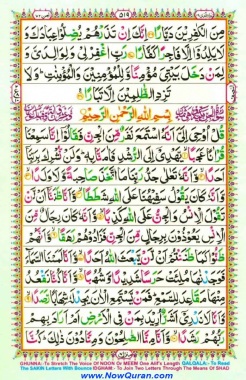 ٥١٩
مِنَ الْكٰفِرِيْنَ دَيَّارًا اِنَّكَ اِنْ تَذَرْهُمْ يُضِلُّوْا عِبَادَكَ وَ
لَا يَلِدُوْٓا اِلَّا فَاجِرًا كَفَّارًا رَبِّ اغْفِرْ لِيْ وَلِوَالِدَيَّ وَ
لِمَنْ دَخَلَ بَيْتِيَ مُؤْمِنًا وَّلِلْمُؤْمِنِيْنَ وَالْمُؤْمِنٰتِ وَلَا
تَزِدِ الظّٰلِمِيْنَ اِلَّا تَبَارًا
بِسْمِ اللّٰهِ الرَّحْمٰنِ الرَّحِيْمِ
قُلْ اُوْحِيَ اِلَيَّ اَنَّهُ اسْتَمَعَ نَفَرٌ مِّنَ الْجِنِّ فَقَالُوْٓا اِنَّا سَمِعْنَا
قُرْاٰنًا عَجَبًا يَّهْدِيْٓ اِلَى الرُّشْدِ فَاٰمَنَّا بِهٖ وَلَنْ نُّشْرِكَ بِرَبِّنَآ
اَحَدًا وَّاَنَّهٗ تَعٰلٰى جَدُّ رَبِّنَا مَا اتَّخَذَ صَاحِبَةً وَّلَا وَلَدًا
وَّاَنَّهٗ كَانَ يَقُوْلُ سَفِيْهُنَا عَلَى اللّٰهِ شَطَطًا وَّاَنَّا ظَنَنَّآ اَنْ لَّنْ
تَقُوْلَ الْاِنْسُ وَالْجِنُّ عَلَى اللّٰهِ كَذِبًا وَّاَنَّهٗ كَانَ رِجَالٌ مِّنَ
الْاِنْسِ يَعُوْذُوْنَ بِرِجَالٍ مِّنَ الْجِنِّ فَزَادُوْهُمْ رَهَقًا وَّاَنَّهُمْ
ظَنُّوْا كَمَا ظَنَنْتُمْ اَنْ لَّنْ يَّبْعَثَ اللّٰهُ اَحَدًا وَّاَنَّا لَمَسْنَا السَّمَآءَ
فَوَجَدْنٰهَا مُلِئَتْ حَرَسًا شَدِيْدًا وَّشُهُبًا وَّاَنَّا كُنَّا نَقْعُدُ
مِنْهَا مَقَاعِدَ لِلسَّمْعِ فَمَنْ يَّسْتَمِعِ الْاٰنَ يَجِدْ لَهٗ شِهَابًا
رَّصَدًا وَّاَنَّا لَا نَدْرِيْٓ اَشَرٌّ اُرِيْدَ بِمَنْ فِي الْاَرْضِ اَمْ اَرَادَ بِهِمْ
رَبُّهُمْ رَشَدًا وَّاَنَّا مِنَّا الصّٰلِحُوْنَ وَمِنَّا دُوْنَ ذٰلِكَ كُنَّا
GHUNNA:- To Stretch The Voice Of NOON Or MEEM One Alif's Length QALQALA:- To Read
The SAKIN Letters With Bounce IDGHAM:- To Join Two Letters Through The Means Of SHAD
www.NowQuran.com